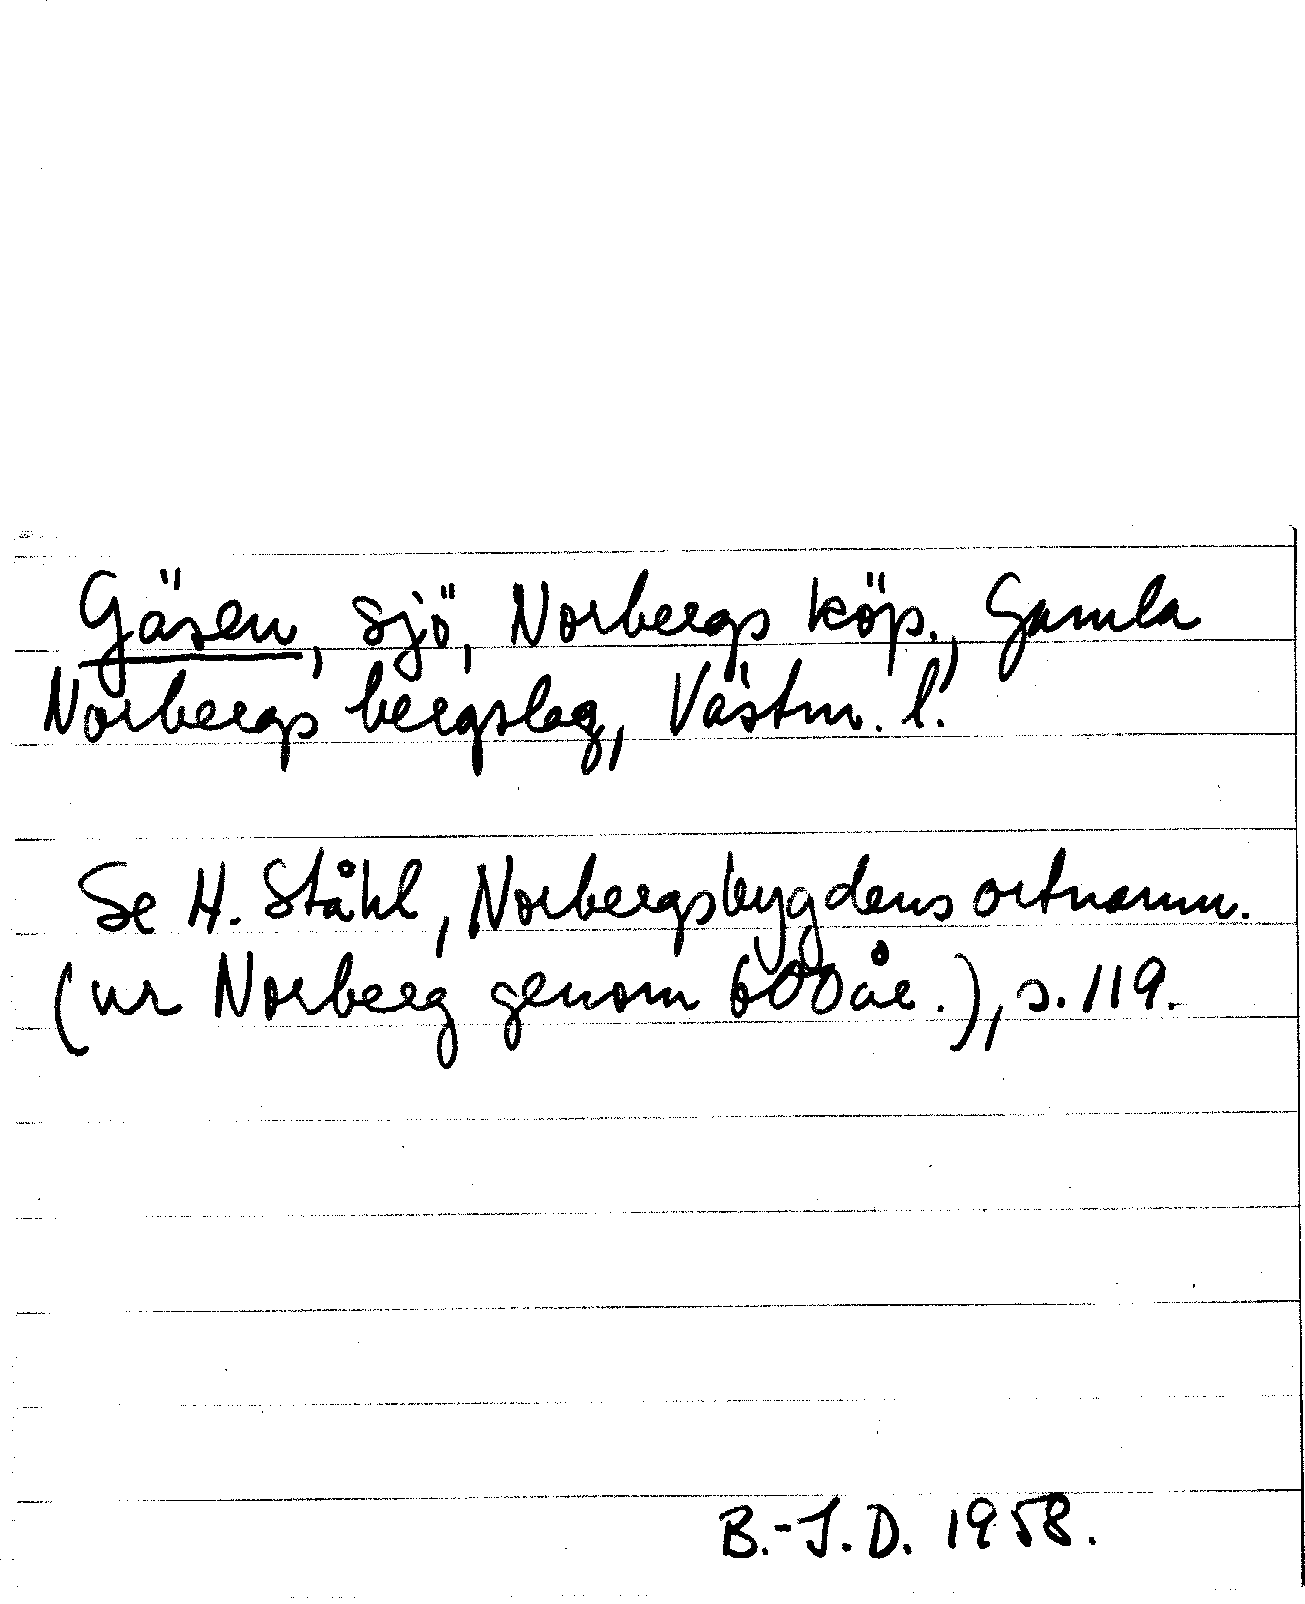 Gäsen, sjö, Norbergs köp., Gamla
Norbergs bergslag, Västm. l.
Se H. Ståhl, Norbergsbygdens ortnamn.
(ur Norberg genom 600 år.), s. 119.
B.-J.D. 1958.